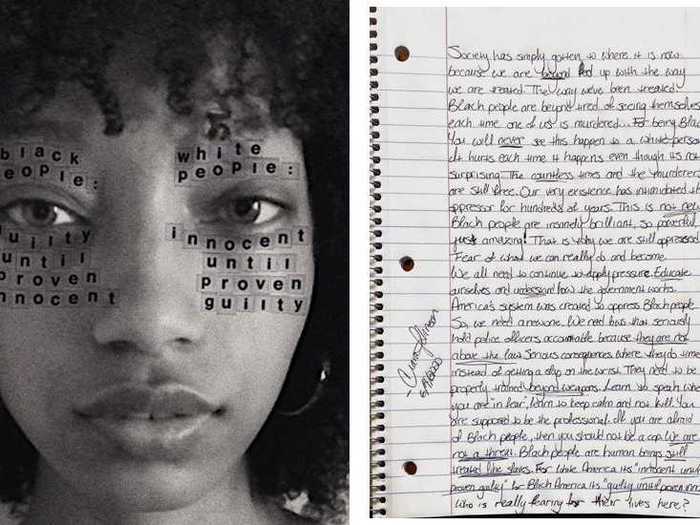 black
people:
guilty
until
proven
innocent
white
people:
innocent
until
proven
guilty
Society has simply gotten to where it is now
because we are beyond fed up with the way
we are treated. The way we've been treated.
Black people are beyond tired of seeing themselves
each time one of us is murdered. For being Black.
You will never see this happen to a white person.
It hurts each time it happens even though its not
surprising. The countless times and the murderers
are still free. Our very existence has intimidated
oppressor for hundreds of years. This is not new.
Black people are insanely brilliant, so powerful,
just amazing! That is why we are still oppressed.
Fear of what we can really do and become.
We all need to continue to apply pressure. Educate
ourselves and understand how the government works.
America's system was created to oppress Black people.
So, we need a new one. We need laws that seriously
hold police officers accountable because they are not
above the law. Serious consequences where they do time
instead of getting a slap on the wrist. They need to be
properly trained beyond weapons. Learn to speak when
you are "in fear", learn to keep calm and not kill. You
are supposed to be the professional. If you are afraid
of Black people, then you should not be a cop. We are
not a threat. Black people are human beings still
treated like slaves. For White America its "innocent until
proven guilty" for Black America its "guilty until proven
Who is really fearing for their lives here?